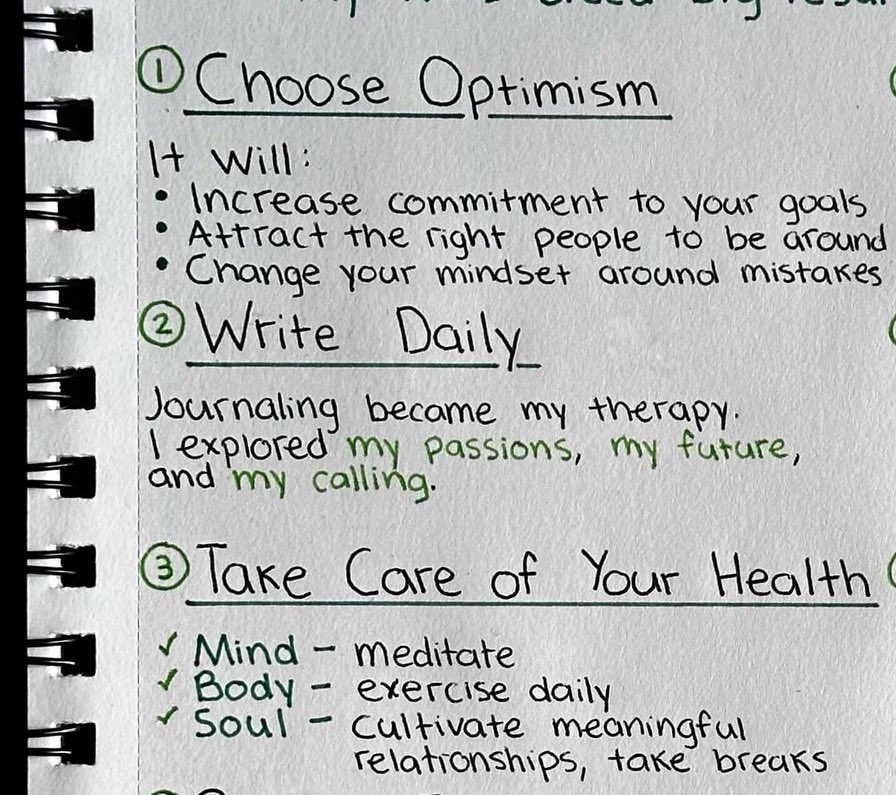 ① Choose Optimism
It will:
• Increase commitment to your goals
• Attract the right people to be around
• Change your mindset around mistakes
② Write Daily
Journaling became my therapy.
I explored my passions, my future,
and my calling.
③ Take Care of Your Health
✓ Mind - meditate
✓ Body - exercise daily
✓ Soul - cultivate meaningful
relationships, take breaks